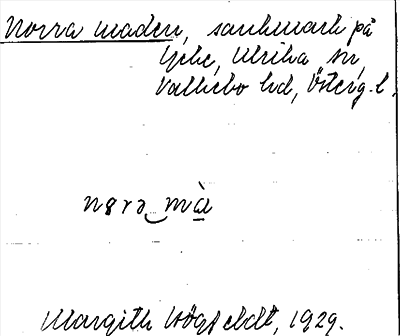 Norra maden, sankmark på
Lycke, Ulrika sn,
Vallebo hd, Österg. l.
nɞrɘ mà
Margith Högfeldt, 1929.